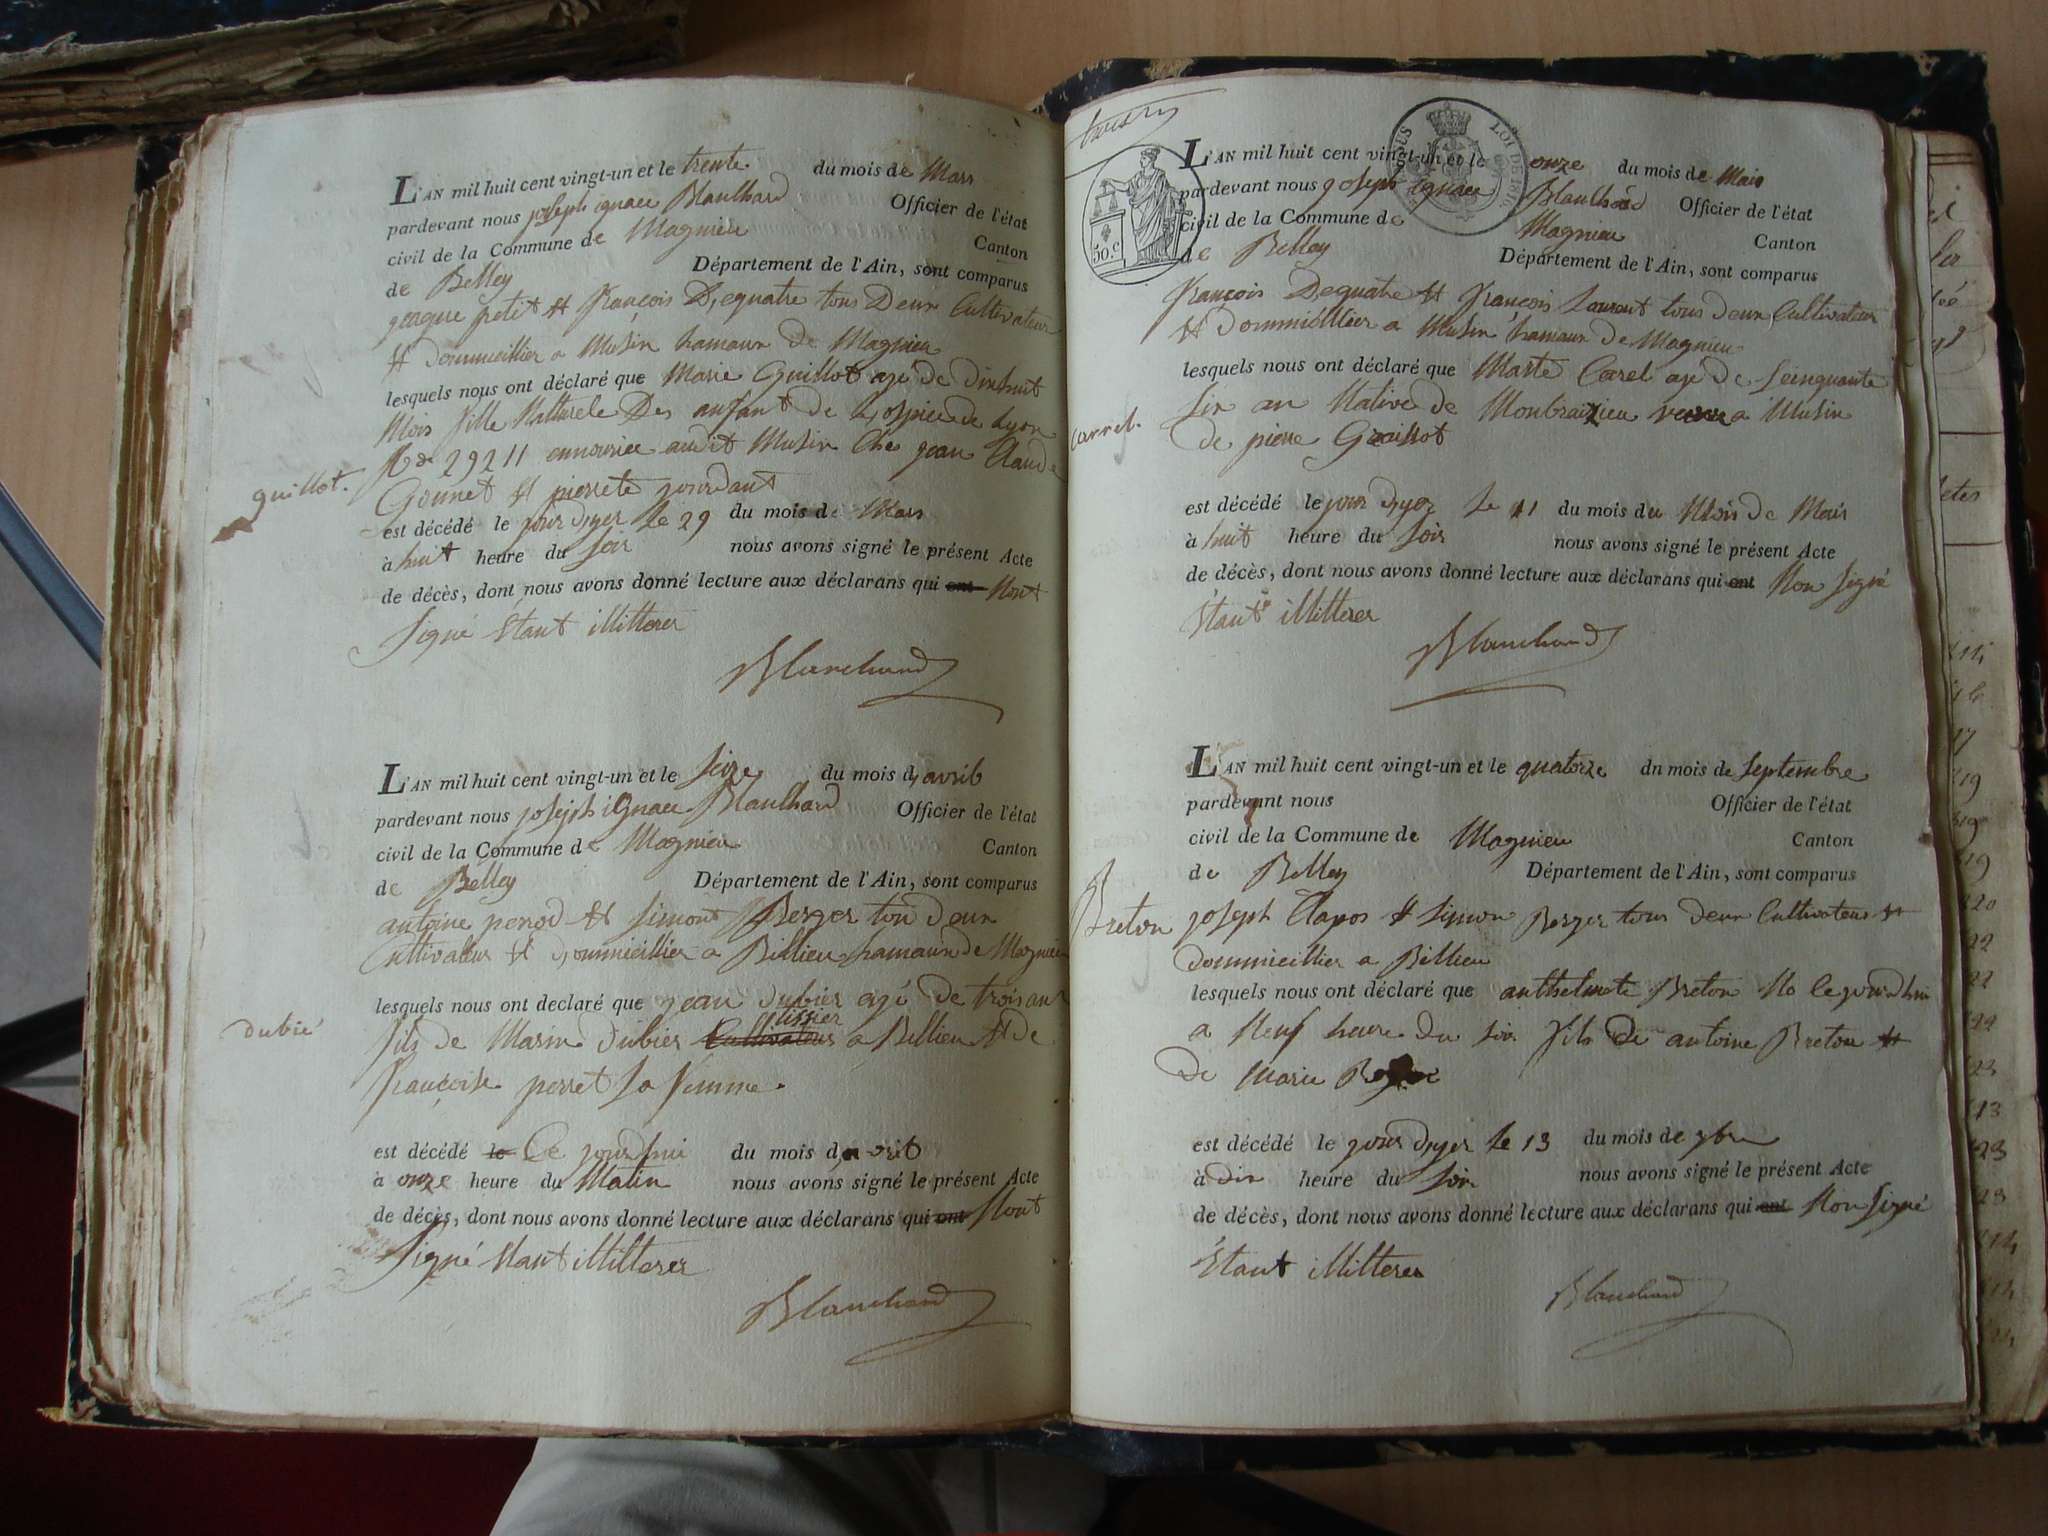 L'AN mil huit cent vingt-un et le trente du mois de Mars
pardevant nous joseph ignace Blanchard Officier de l'état
civil de la Commune de Magnieu Canton
de Belley Département de l'Ain, sont comparus
petit et françois Dequatre tous Deux Cultivateur
et dommicillier a Musin hamaux De Magnieu
lesquels nous ont déclaré que Marie Guillot agé de dixhuit
Mois fille Natturele Des anfant de L'ospice de Lyon
29211 ennourice audit Musin Che jean Claude
guillot.
Gonnet et pierrete jourdant
est décédé le jour dyer le 29 du mois de Mars
à huit heure du soir nous avons signé le présent Acte
de décès, dont nous avons donné lecture aux déclarans qui ont Nont
Signé Etant illitterer
Blanchard
L'AN mil huit cent vingt-un et le seize du mois d'avril
pardevant nous joseph ignace Blanchard Officier de l'état
civil de la Commune de Magnieu Canton
de Belley Département de l'Ain, sont comparus
antoine perod et simont Berger tou deux
Cultivateur et dommicillier a Billieu hamaux de Magnieu
lesquels nous ont declaré que jean dubier agé de trois ans
tissier
dubié
fils de Marin dubier Cultivateur a Billieu et de
françoise perret sa femme.
est décédé le Ce jourdhui du mois d'avril
à onze heure du Matin nous avons signé le présent Acte
de décès, dont nous avons donné lecture aux déclarans qui ont Nont
Signé Etant illitterer
Blanchard
L'AN mil huit cent vingt-un et le onze du mois de Mais
LOI DE 1816
50.c
pardevant nous joseph ignace Blanchard Officier de l'état
civil de la Commune de Magnieu Canton
de Belley Département de l'Ain, sont comparus
françois Dequatre et françois Laurent tous deux Cultivateur
et dommicillier a Musin hamaux De Magnieu
lesquels nous ont déclaré que Marte Carel agé de seinquante
carrel.
six an Native de veuve a Musin
de pierre Guillot
est décédé le jour dyer le 11 du mois du Mois de Mais
à huit heure du soir nous avons signé le présent Acte
de décès, dont nous avons donné lecture aux déclarans qui ont Non Signé
Etant illitterer
Blanchard
L'AN mil huit cent vingt-un et le quatorze dn mois de septembre
pardevant nous Officier de l'état
civil de la Commune de Magnieu Canton
de Belley Département de l'Ain, sont comparus
Breton
joseph Clapos et simon Berger tous deux Cultivateur et
dommicillier a Billieu
lesquels nous ont déclaré que Breton le jourdhui
a Neuf heure du soir fils de antoine Breton et
de Marie
est décédé le jour dyer le 13 du mois de 7bre
à dix heure du soir nous avons signé le présent Acte
de décès, dont nous avons donné lecture aux déclarans qui ont Non signé
Etant illitterer
Blanchard